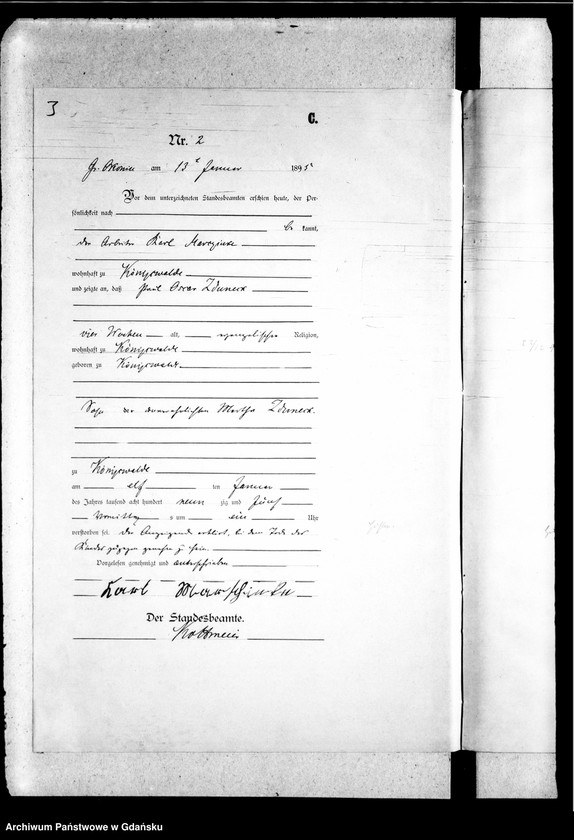 3
C.
Nr. 2
Gr. Okonin am 13 t Januar 1895
Vor dem unterzeichneten Standesbeamten erschien heute, der Per-
sönlichkeit nach
be kannt,
der Arbeiter Karl
wohnhaft zu Königswalde
und zeigte an, daß Paul Oscar
vier Wochen alt, evangelischer Religion,
wohnhaft zu Königswalde
geboren zu Königswalde
Sohn der unverehelichten Martha
zu Königswalde
am elf ten Januar
des Jahres tausend acht hundert neun zig und fünf
Vormittags um ein Uhr
verstorben sei. Der Anzeigende erklärt, bei dem Tode des
Kindes zugegen gewesen zu sein.
Vorgelesen, genehmigt und unterschrieben
Karl
Der Standesbeamte.
Kottmeier
Archiwum Państwowe w Gdańsku